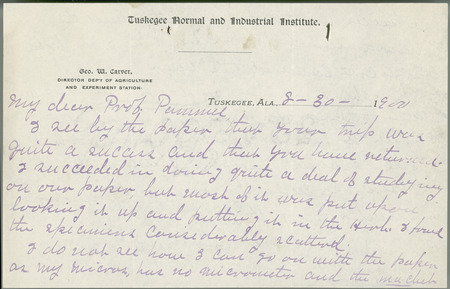 Tuskegee Normal and Industrial Institute.
Geo. W. Carver,
DIRECTOR DEP'T OF AGRICULTURE
AND EXPERIMENT STATION.
TUSKEGEE, ALA. 8-30- 1900
My dear Prof. Pammel
I see by the paper that your trip was
quite a success and that you have returned.
I succeeded in doing quite a deal of studying
on our paper but most of it was put upon
looking it up and putting it in the Herb. I found
the specimens considerably scattered.
I do not see how I can go on with the paper
as my micros. has no micrometer and the